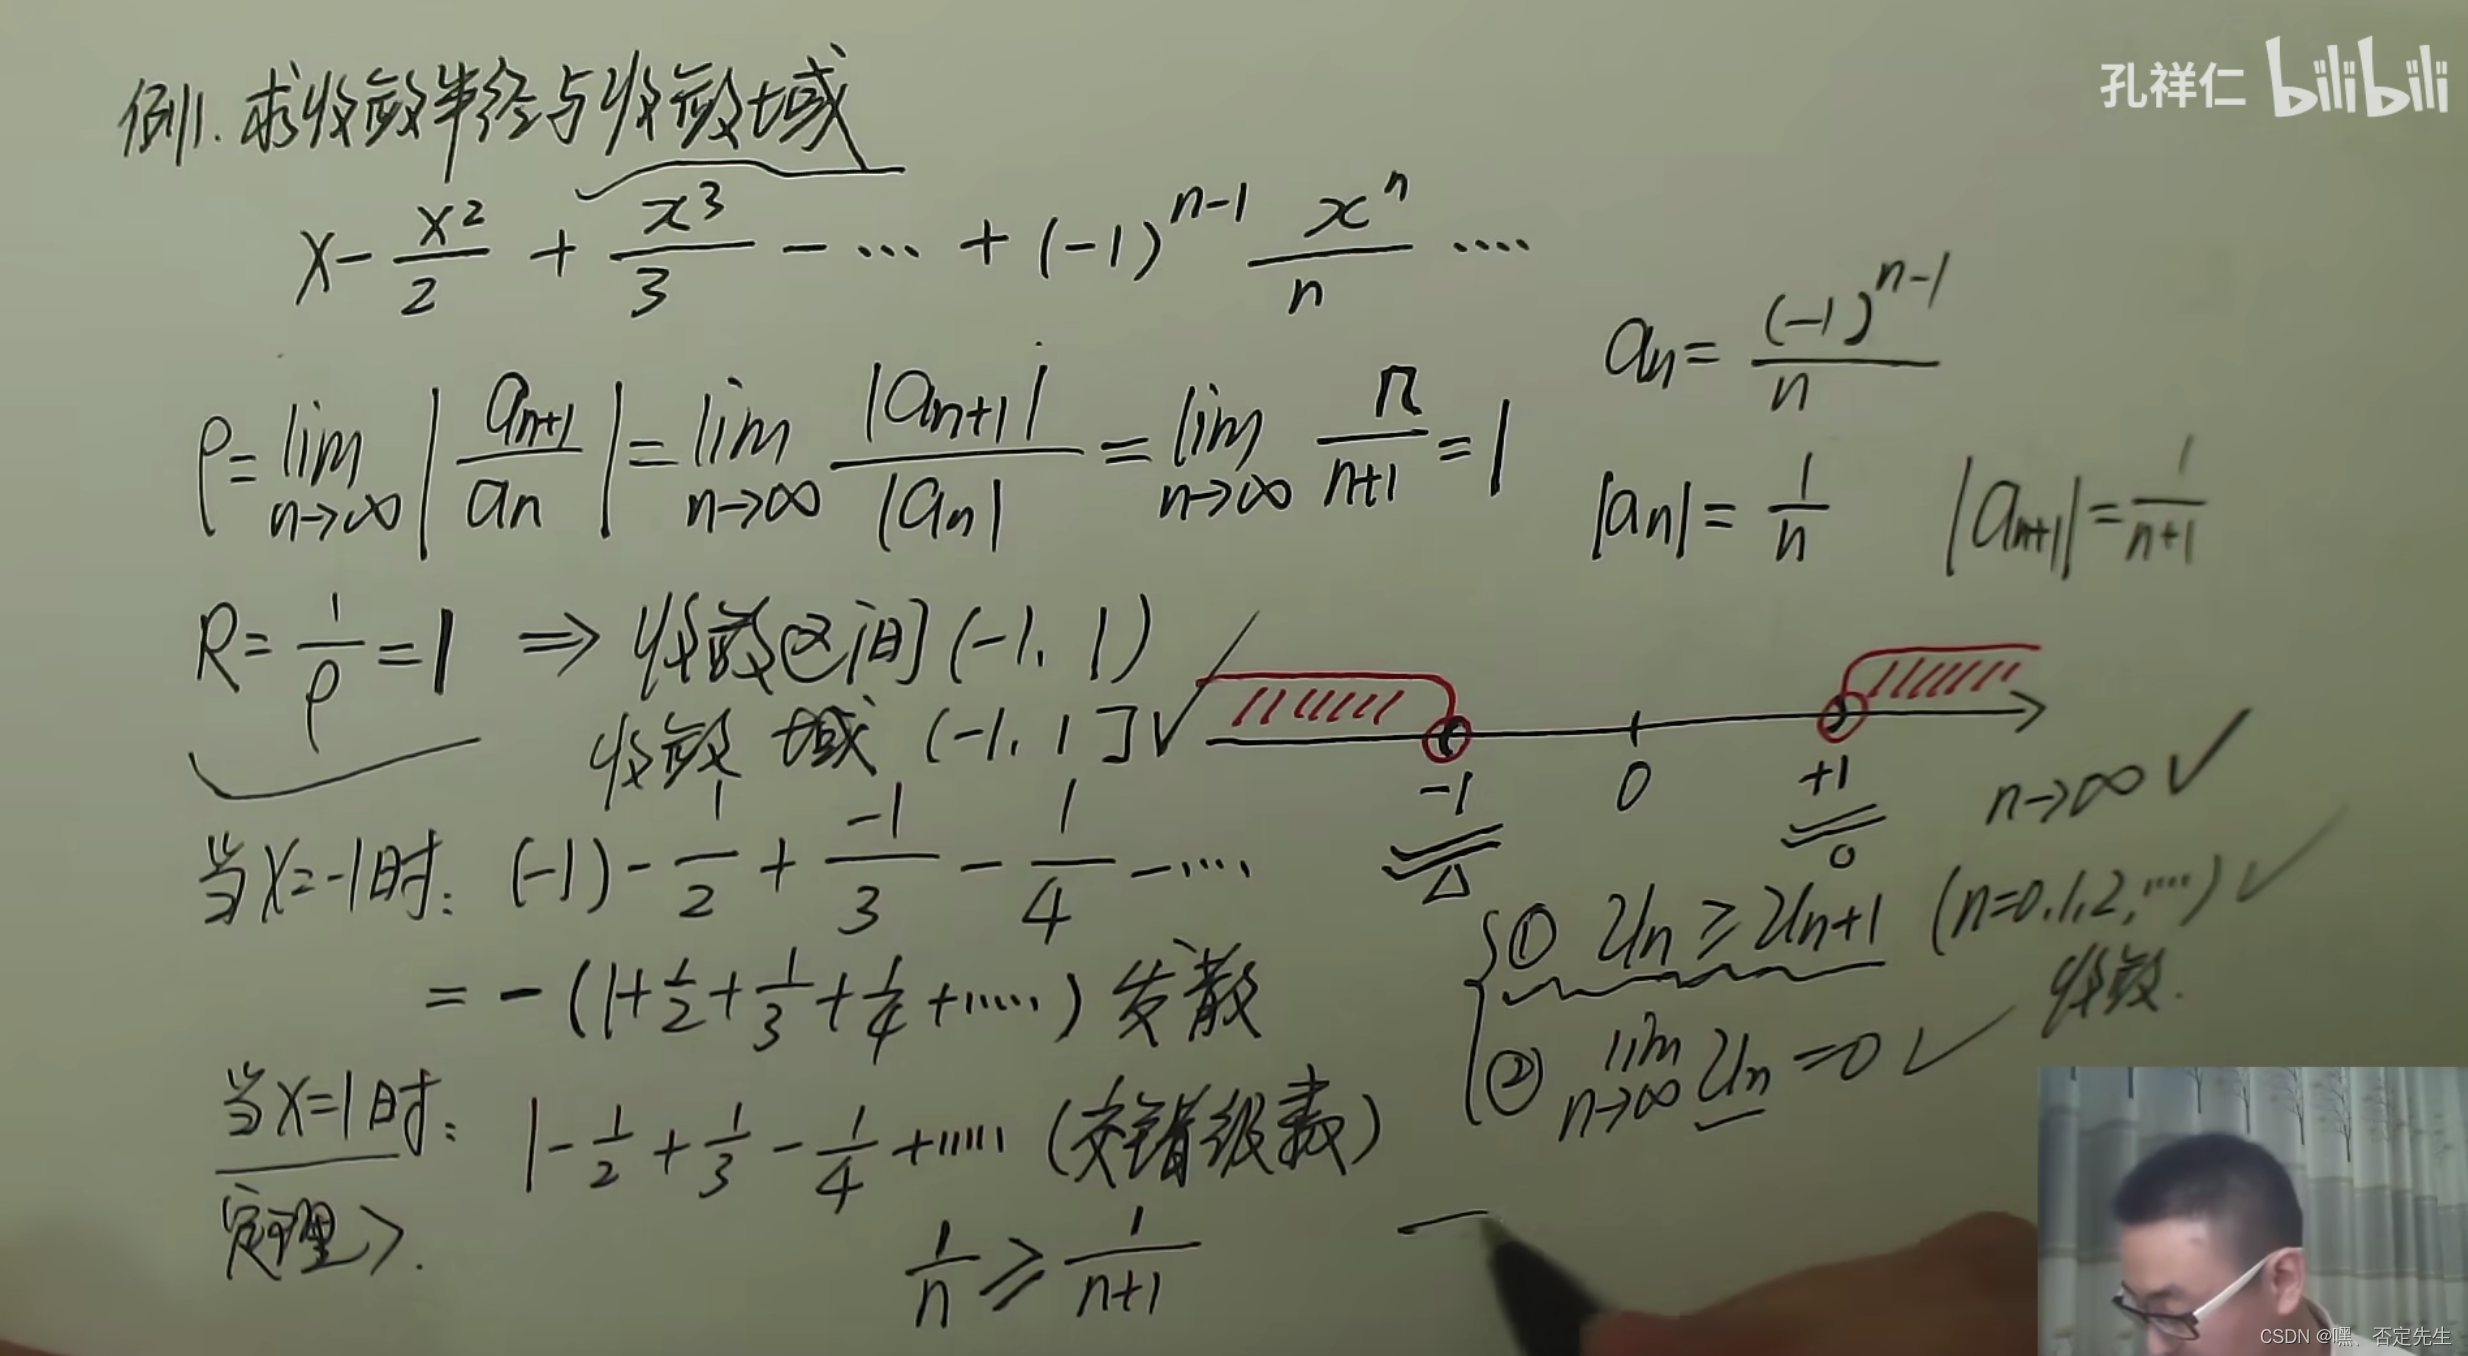 孔祥仁 bilibili
例1. 求收敛半径与收敛域
x - x²/2 + x³/3 - ⋯ + (-1)ⁿ⁻¹ xⁿ/n ⋯⋯
aₙ = (-1)ⁿ⁻¹/n
ρ = lim n→∞ |aₙ₊₁/aₙ| = lim n→∞ |aₙ₊₁|/|aₙ| = lim n→∞ n/(n+1) = 1
|aₙ| = 1/n |aₙ₊₁| = 1/(n+1)
R = 1/ρ = 1 ⇒ 收敛区间 (-1, 1)
收敛域 (-1, 1] ✓
-1 0 +1
△ 0
n→∞ ✓
当x=-1时: (-1) - 1/2 + -1/3 - 1/4 - ⋯⋯
① uₙ ≥ uₙ₊₁ (n=0,1,2,⋯⋯) ✓
收敛.
= -(1 + 1/2 + 1/3 + 1/4 + ⋯⋯) 发散
② lim n→∞ uₙ = 0 ✓
当x=1时: 1 - 1/2 + 1/3 - 1/4 + ⋯⋯ (交错级数)
定理>.
1/n ≥ 1/(n+1)
CSDN @嘿、否定先生